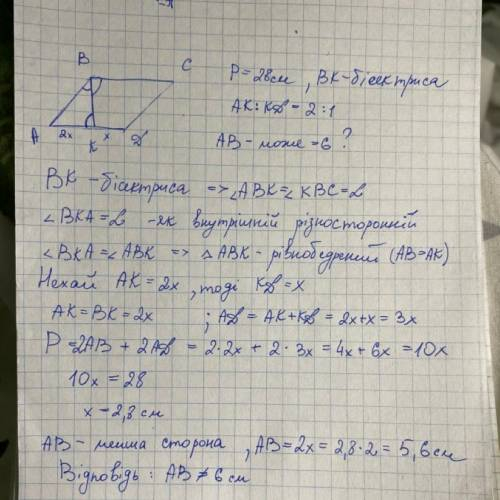 B
C
A
2x
K
x
D
P = 28см , BK - бісектриса
AK : KD - 2 : 1
AB - може = 6 ?
BK - бісектриса => ∠ABK = ∠KBC = α
∠BKA = α - як внутрішній різносторонній
∠BKA = ∠ABK => △ABK - рівнобедрений (AB = AK)
Нехай AK = 2x , тоді KD = x
AK = BK = 2x ; AD = AK + KD = 2x + x = 3x
P = 2AB + 2AD = 2·2x + 2·3x = 4x + 6x = 10x
10x = 28
x - 2,8 см
AB - менша сторона , AB = 2x = 2,8·2 = 5,6 см
Відповідь : AB ≠ 6 см